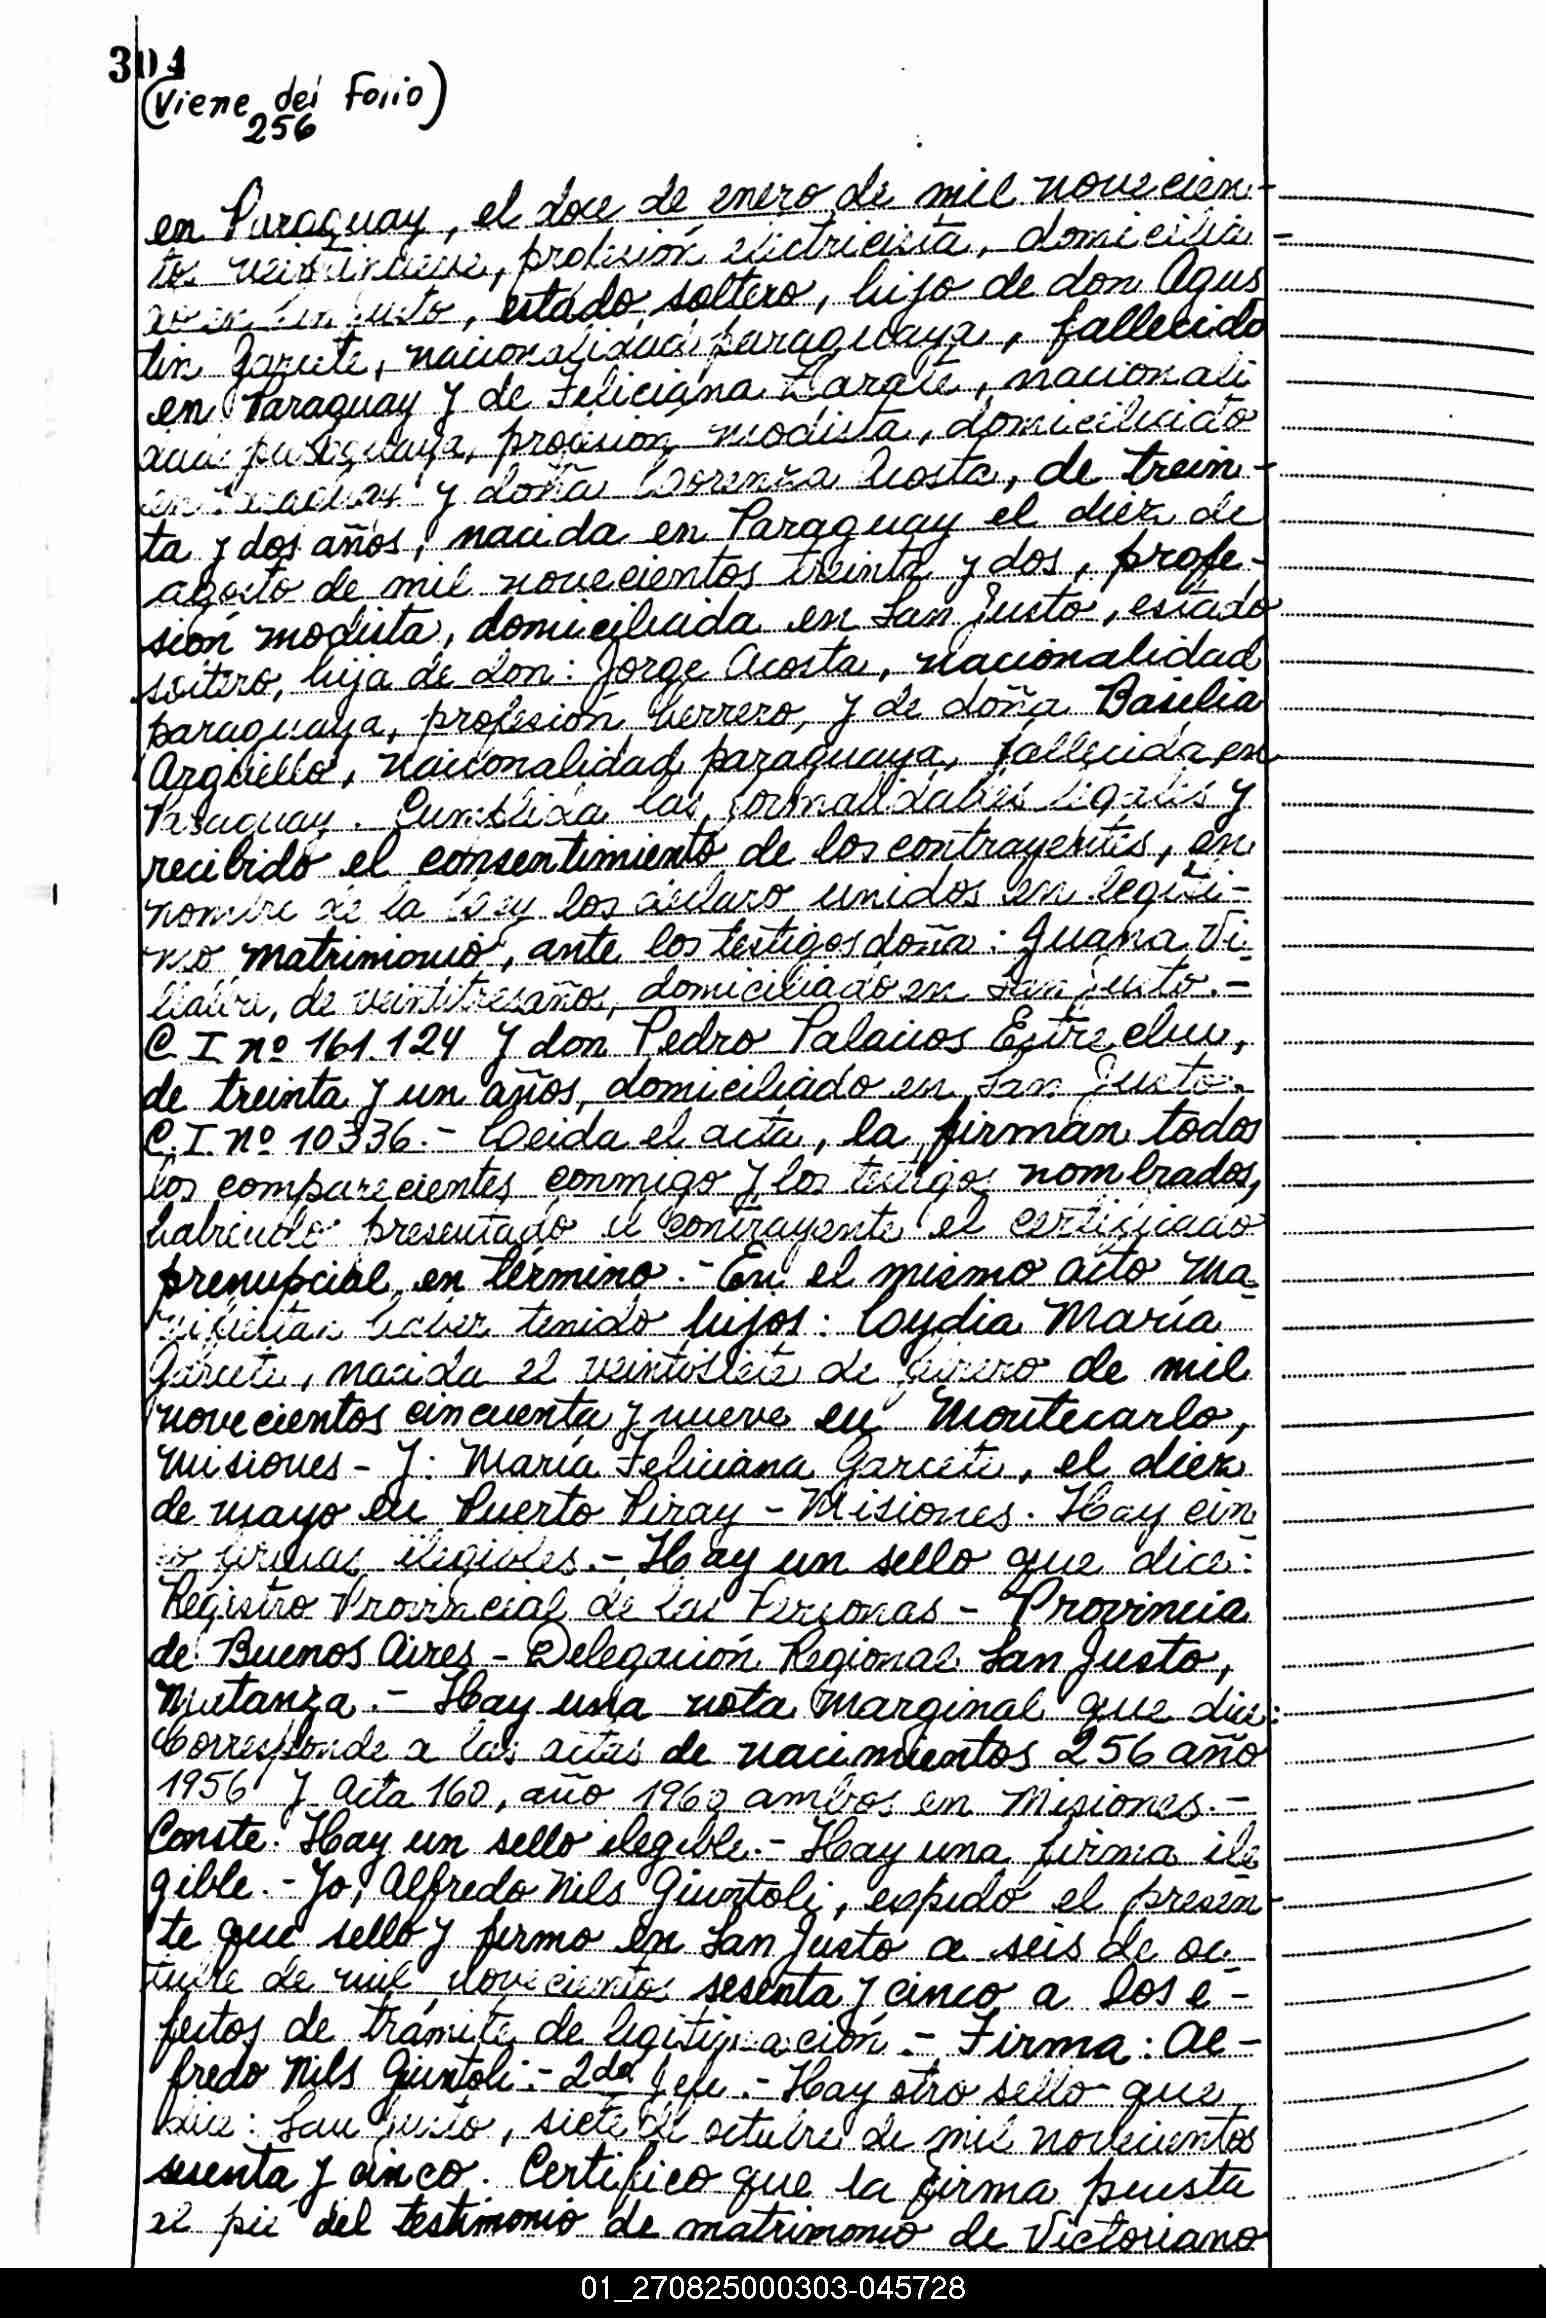 304
(Viene del Folio)
256
en Paraguay, el doce de enero de mil novecien-
tos veintinueve, profesión electricista, domicilia-
do en San Justo, estado soltero, hijo de don Agus
tin Garcete, nacionalidad paraguaya, fallecido
en Paraguay y de Feliciana Zarate, nacionali
dad paraguaya, profesión modista, domiciliado
en Paraguay y doña Lorenza Acosta, de trein-
ta y dos años, nacida en Paraguay el diez de
agosto de mil novecientos treinta y dos, profe-
sión modista, domiciliada en San Justo, estado
soltero, hija de don: Jorge Acosta, nacionalidad
paraguaya, profesión herrero, y de doña Basilia
Argüello, nacionalidad paraguaya, fallecida en
Paraguay. Cumplida las formalidades legales y
recibido el consentimiento de los contrayentes, en
nombre de la Ley los declaro unidos en legíti-
mo matrimonio, ante los testigos doña: Juana Vi-
llalba, de veintitres años, domiciliado en San Justo.-
C.I. nº 161.124 y don Pedro Palacios
de treinta y un años, domiciliado en San Justo.
C.I. nº 10336.- Leida el acta, la firman todos
los comparecientes conmigo y los testigos nombrados,
habiendo presentado el contrayente el certificado
prenupcial en término.- En el mismo acto ma-
nifiestan haber tenido hijos: Lydia María
Garcete, nacida el veintisiete de febrero de mil
novecientos cincuenta y nueve en Montecarlo,
Misiones - y: María Feliciana Garcete, el diez
de mayo en Puerto Piray - Misiones. Hay cin
co firmas ilegibles.- Hay un sello que dice:
Registro Provincial de las Personas - Provincia
de Buenos Aires - Delegación Regional San Justo,
Matanza.- Hay una nota marginal que dice:
Corresponde a las actas de nacimientos 256 año
1956 y Acta 160, año 1960 ambos en Misiones.-
Conste. Hay un sello ilegible.- Hay una firma ile
gible.- Yo, Alfredo Nils Giuntoli, expido el presen-
te que sello y firmo en San Justo a seis de oc-
tubre de mil novecientos sesenta y cinco a los e-
fectos de trámite de legitimación.- Firma: Al-
fredo Nils Giuntoli.- 2da Jefe.- Hay otro sello que
dice: San Justo, siete de octubre de mil novecientos
sesenta y cinco. Certifico que la firma puesta
al pie del testimonio de matrimonio de Victoriano
01_270825000303-045728